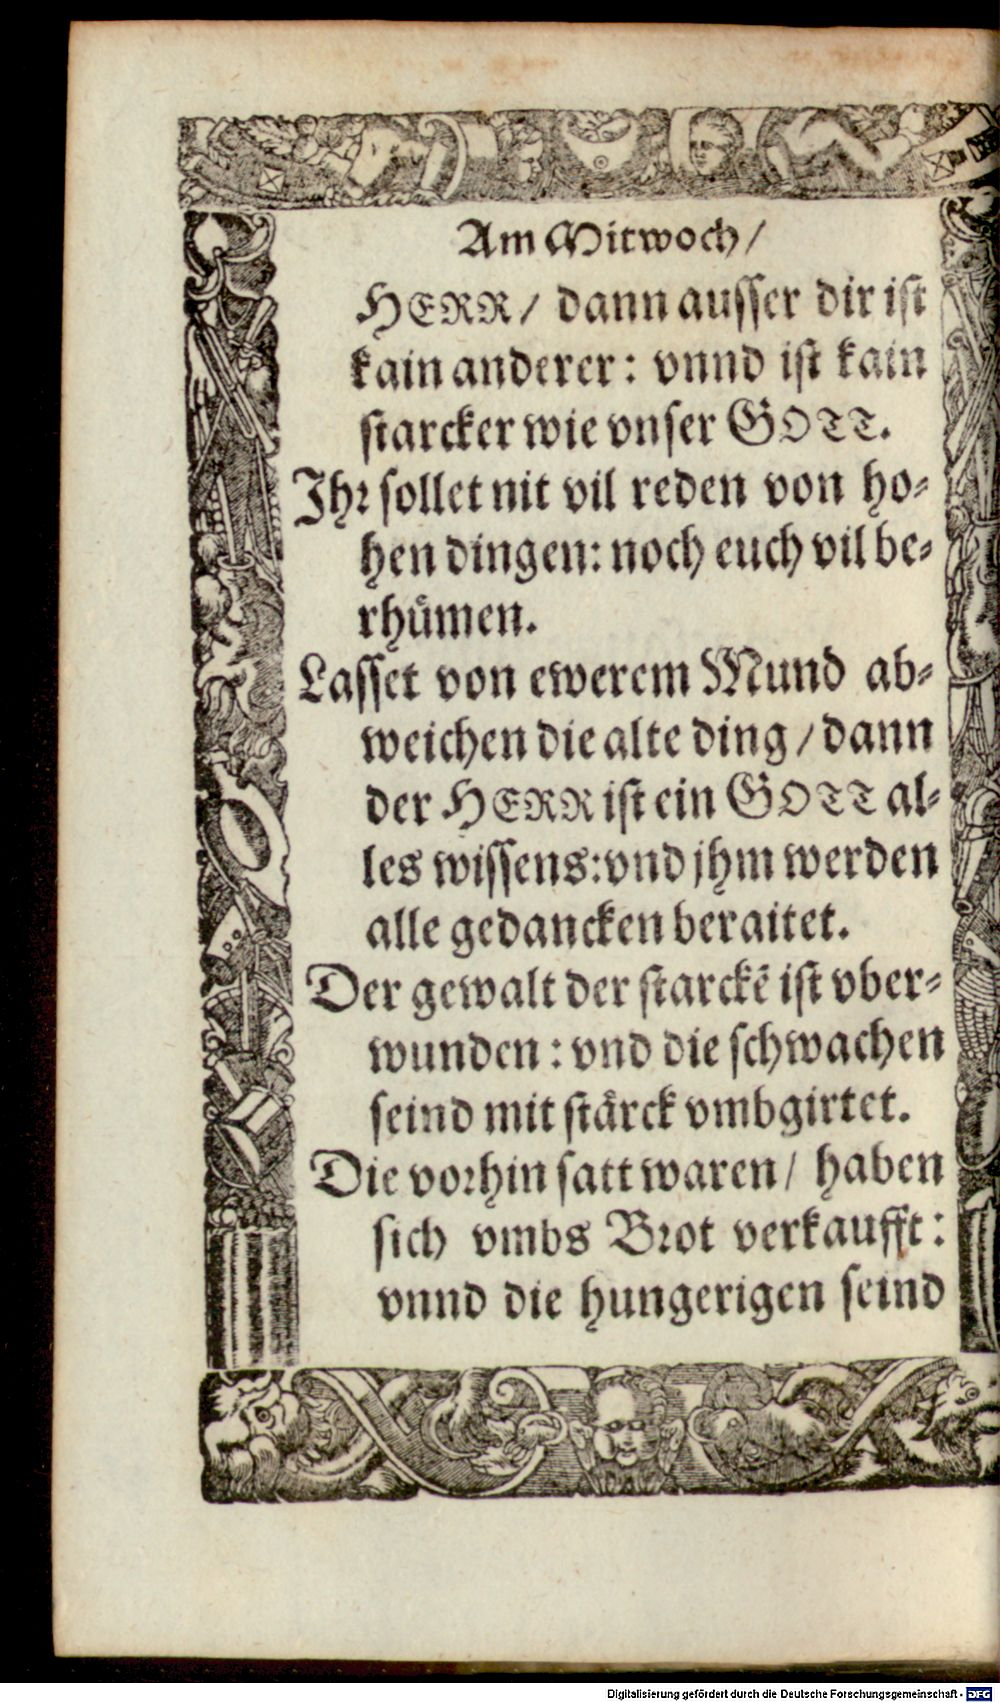 Am Mitwoch/
HERR/ dann ausser dir ist
kain anderer: vnnd ist kain
starcker wie vnser GOTT.
Ihr sollet nit vil reden von ho-
hen dingen: noch euch vil be-
rhuͤmen.
Lasset von ewerem Mund ab-
weichen die alte ding/ dann
der HERR ist ein GOTT al-
les wissens: vnd jhm werden
alle gedancken beraitet.
Der gewalt der starckē ist vber-
wunden: vnd die schwachen
seind mit staͤrck vmbgirtet.
Die vorhin satt waren/ haben
sich vmbs Brot verkaufft:
vnnd die hungerigen seind
Digitalisierung gefördert durch die Deutsche Forschungsgemeinschaft - DFG